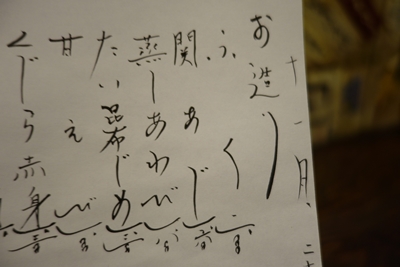 十一月、二
お造り
ふく
関あじ
蒸しあわび
たい昆布じめ
甘えび
くじら赤身